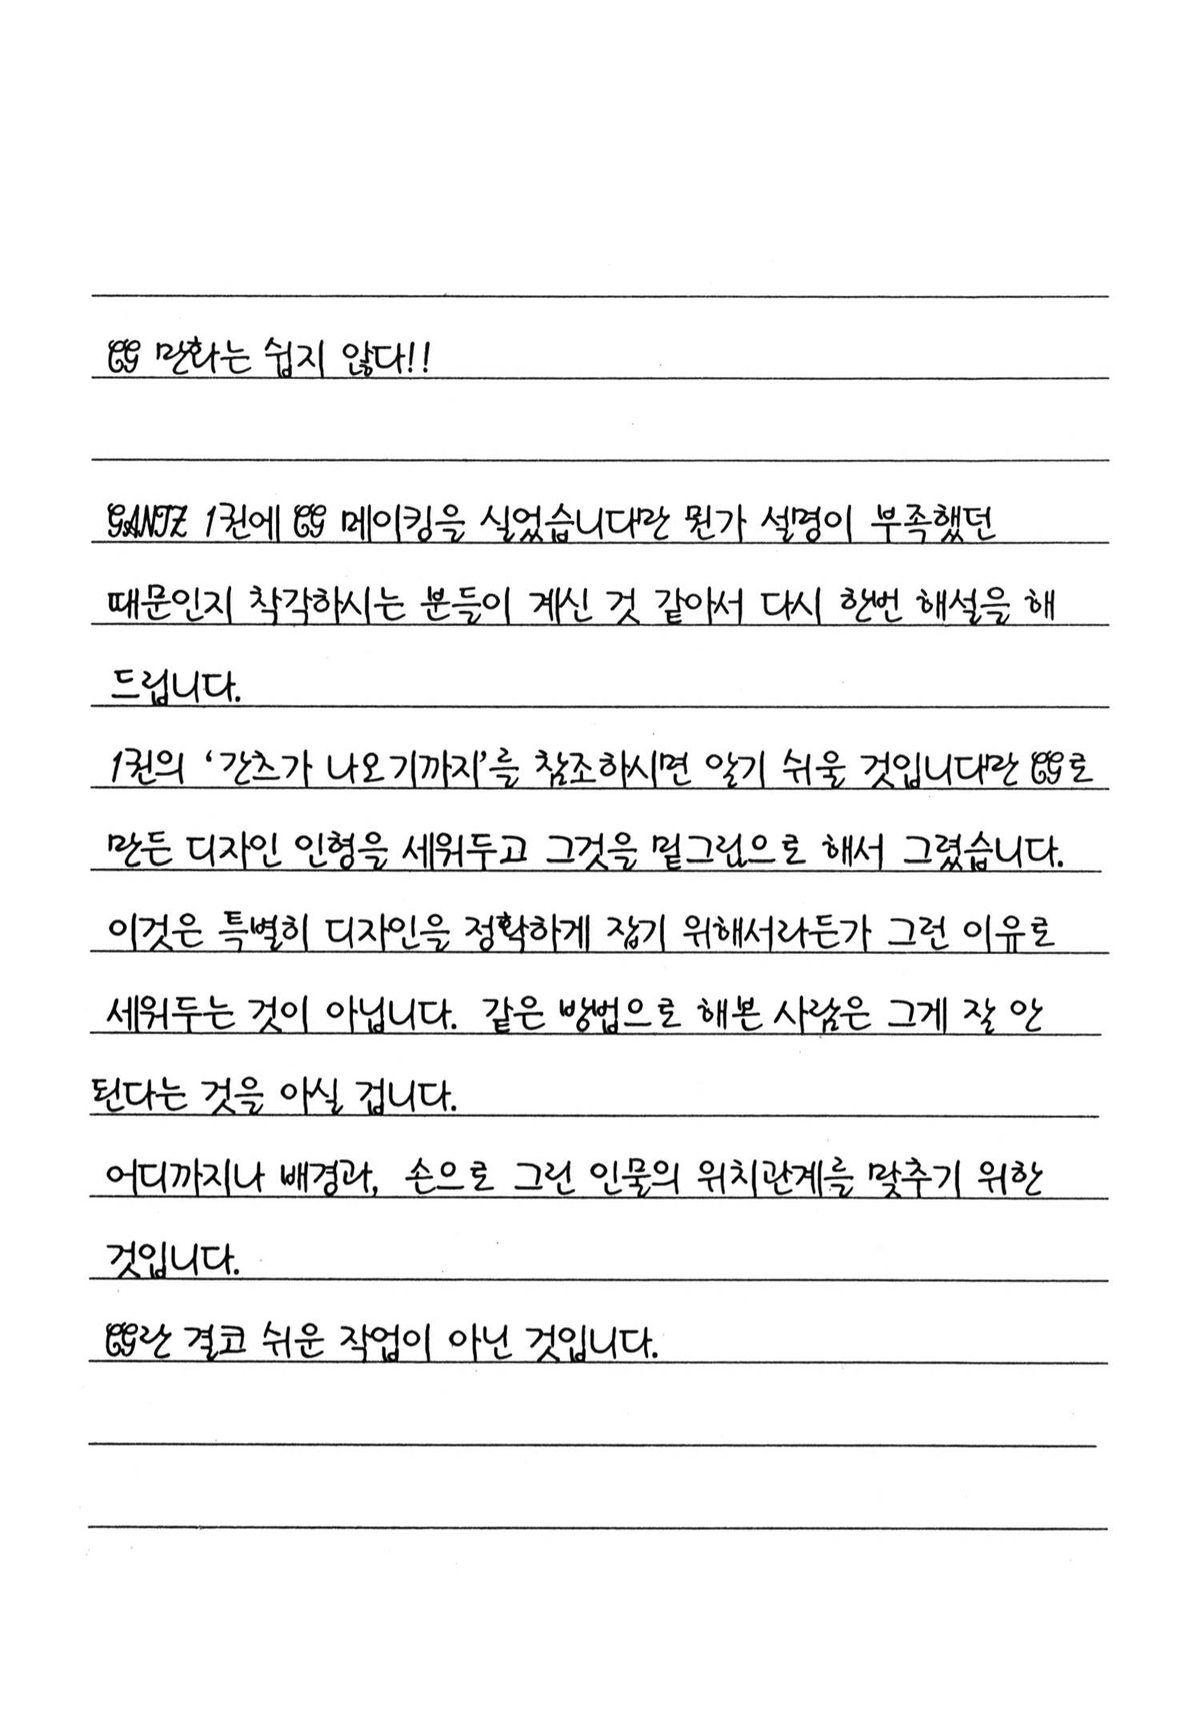 CG 만화는 쉽지 않다!!
GANTZ 1권에 CG 메이킹을 실었습니다만 뭔가 설명이 부족했던
때문인지 착각하시는 분들이 계신 것 같아서 다시 한번 해설을 해
드립니다.
1권의 ‘간츠가 나오기까지’를 참조하시면 알기 쉬울 것입니다만 CG로
만든 디자인 인형을 세워두고 그것을 밑그림으로 해서 그렸습니다.
이것은 특별히 디자인을 정확하게 잡기 위해서라든가 그런 이유로
세워두는 것이 아닙니다. 같은 방법으로 해본 사람은 그게 잘 안
된다는 것을 아실 겁니다.
어디까지나 배경과, 손으로 그린 인물의 위치관계를 맞추기 위한
것입니다.
CG란 결코 쉬운 작업이 아닌 것입니다.